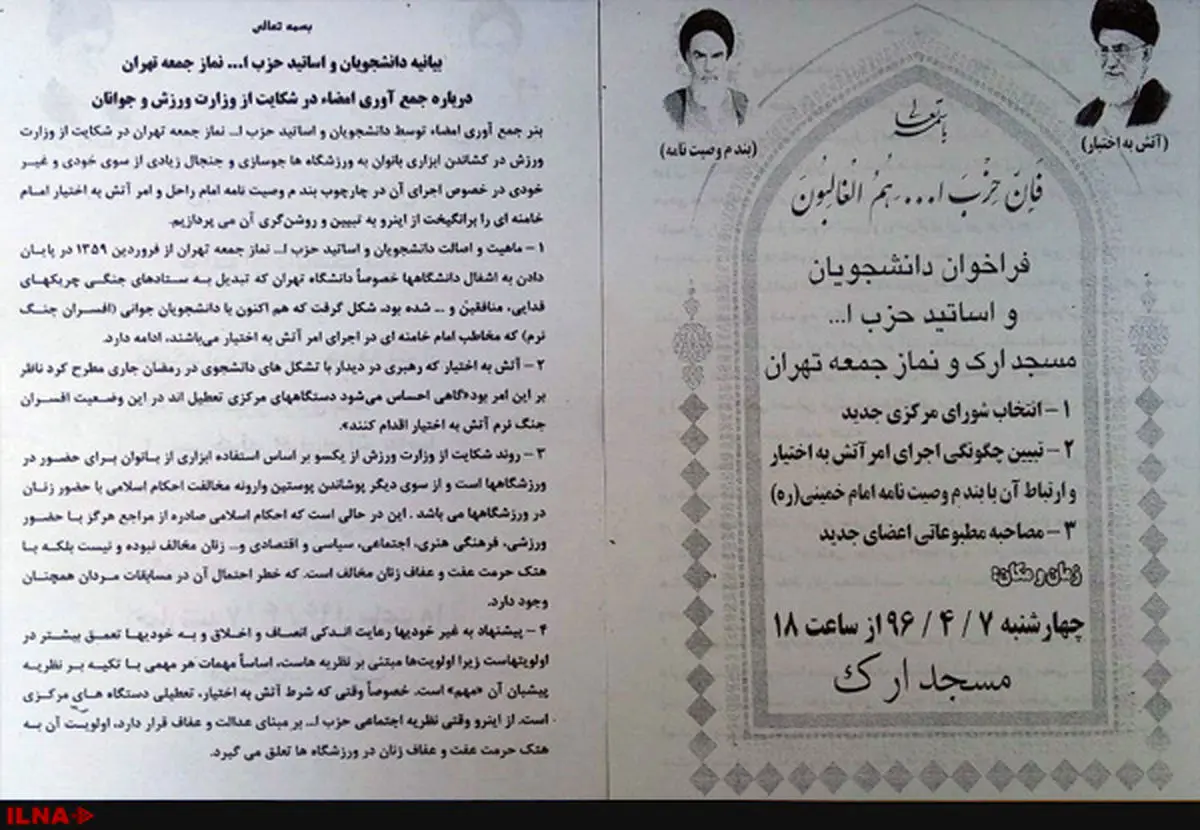 باسمه تعالی
(بند م وصیت نامه)
(آتش به اختیار)
فَاِنَّ حِزْبَ ا... هُمُ الْغالِبُونَ
فراخوان دانشجویان
و اساتید حزب ا...
مسجد ارک و نماز جمعه تهران
۱ – انتخاب شورای مرکزی جدید
۲ – تبیین چگونگی اجرای امر آتش به اختیار
و ارتباط آن با بند م وصیت نامه امام خمینی(ره)
۳ – مصاحبه مطبوعاتی اعضای جدید
زمان و مکان:
چهارشنبه ۷ / ۴ / ۹۶ از ساعت ۱۸
مسجد ارک
بسمه تعالی
بیانیه دانشجویان و اساتید حزب ا... نماز جمعه تهران
درباره جمع آوری امضاء در شکایت از وزارت ورزش و جوانان
بنر جمع آوری امضاء توسط دانشجویان و اساتید حزب ا... نماز جمعه تهران در شکایت از وزارت
ورزش در کشاندن ابزاری بانوان به ورزشگاه ها جوسازی و جنجال زیادی از سوی خودی و غیر
خودی در خصوص اجرای آن در چارچوب بند م وصیت نامه امام راحل و امر آتش به اختیار امام
خامنه ای را برانگیخت از اینرو به تبیین و روشن‌گری آن می پردازیم.
۱ – ماهیت و اصالت دانشجویان و اساتید حزب ا... نماز جمعه تهران از فروردین ۱۳۵۹ در پایان
دادن به اشغال دانشگاهها خصوصاً دانشگاه تهران که تبدیل به ستادهای جنگی چریکهای
فدایی، منافقین و ... شده بود. شکل گرفت که هم اکنون با دانشجویان جوانی (افسران جنگ
نرم) که مخاطب امام خامنه ای در اجرای امر آتش به اختیار می‌باشند، ادامه دارد.
۲ – آتش به اختیار که رهبری در دیدار با تشکل های دانشجوی در رمضان جاری مطرح کرد ناظر
بر این امر بود«گاهی احساس می‌شود دستگاههای مرکزی تعطیل اند در این وضعیت افسران
جنگ نرم آتش به اختیار اقدام کنند».
۳ – روند شکایت از وزارت ورزش از یکسو بر اساس استفاده ابزاری از بانوان برای حضور در
ورزشگاهها است و از سوی دیگر پوشاندن پوستین وارونه مخالفت احکام اسلامی با حضور زنان
در ورزشگاهها می باشد . این در حالی است که احکام اسلامی صادره از مراجع هرگز با حضور
ورزشی، فرهنگی هنری، اجتماعی، سیاسی و اقتصادی و... زنان مخالف نبوده و نیست بلکه با
هتک حرمت عفت و عفاف زنان مخالف است. که خطر احتمال آن در مسابقات مردان همچنان
وجود دارد.
۴ – پیشنهاد به غیر خودیها رعایت اندکی انصاف و اخلاق و به خودیها تعمق بیشتر در
اولویتهاست زیرا اولویت‌ها مبتنی بر نظریه هاست، اساساً مهمات هر مهمی با تکیه بر نظریه
پیشیان آن «مهم» است. خصوصاً وقتی که شرط آتش به اختیار، تعطیلی دستگاه های مرکزی
است. از اینرو وقتی نظریه اجتماعی حزب ا... بر مبنای عدالت و عفاف قرار دارد، اولویت آن به
هتک حرمت عفت و عفاف زنان در ورزشگاه ها تعلق می گیرد.
ILNA